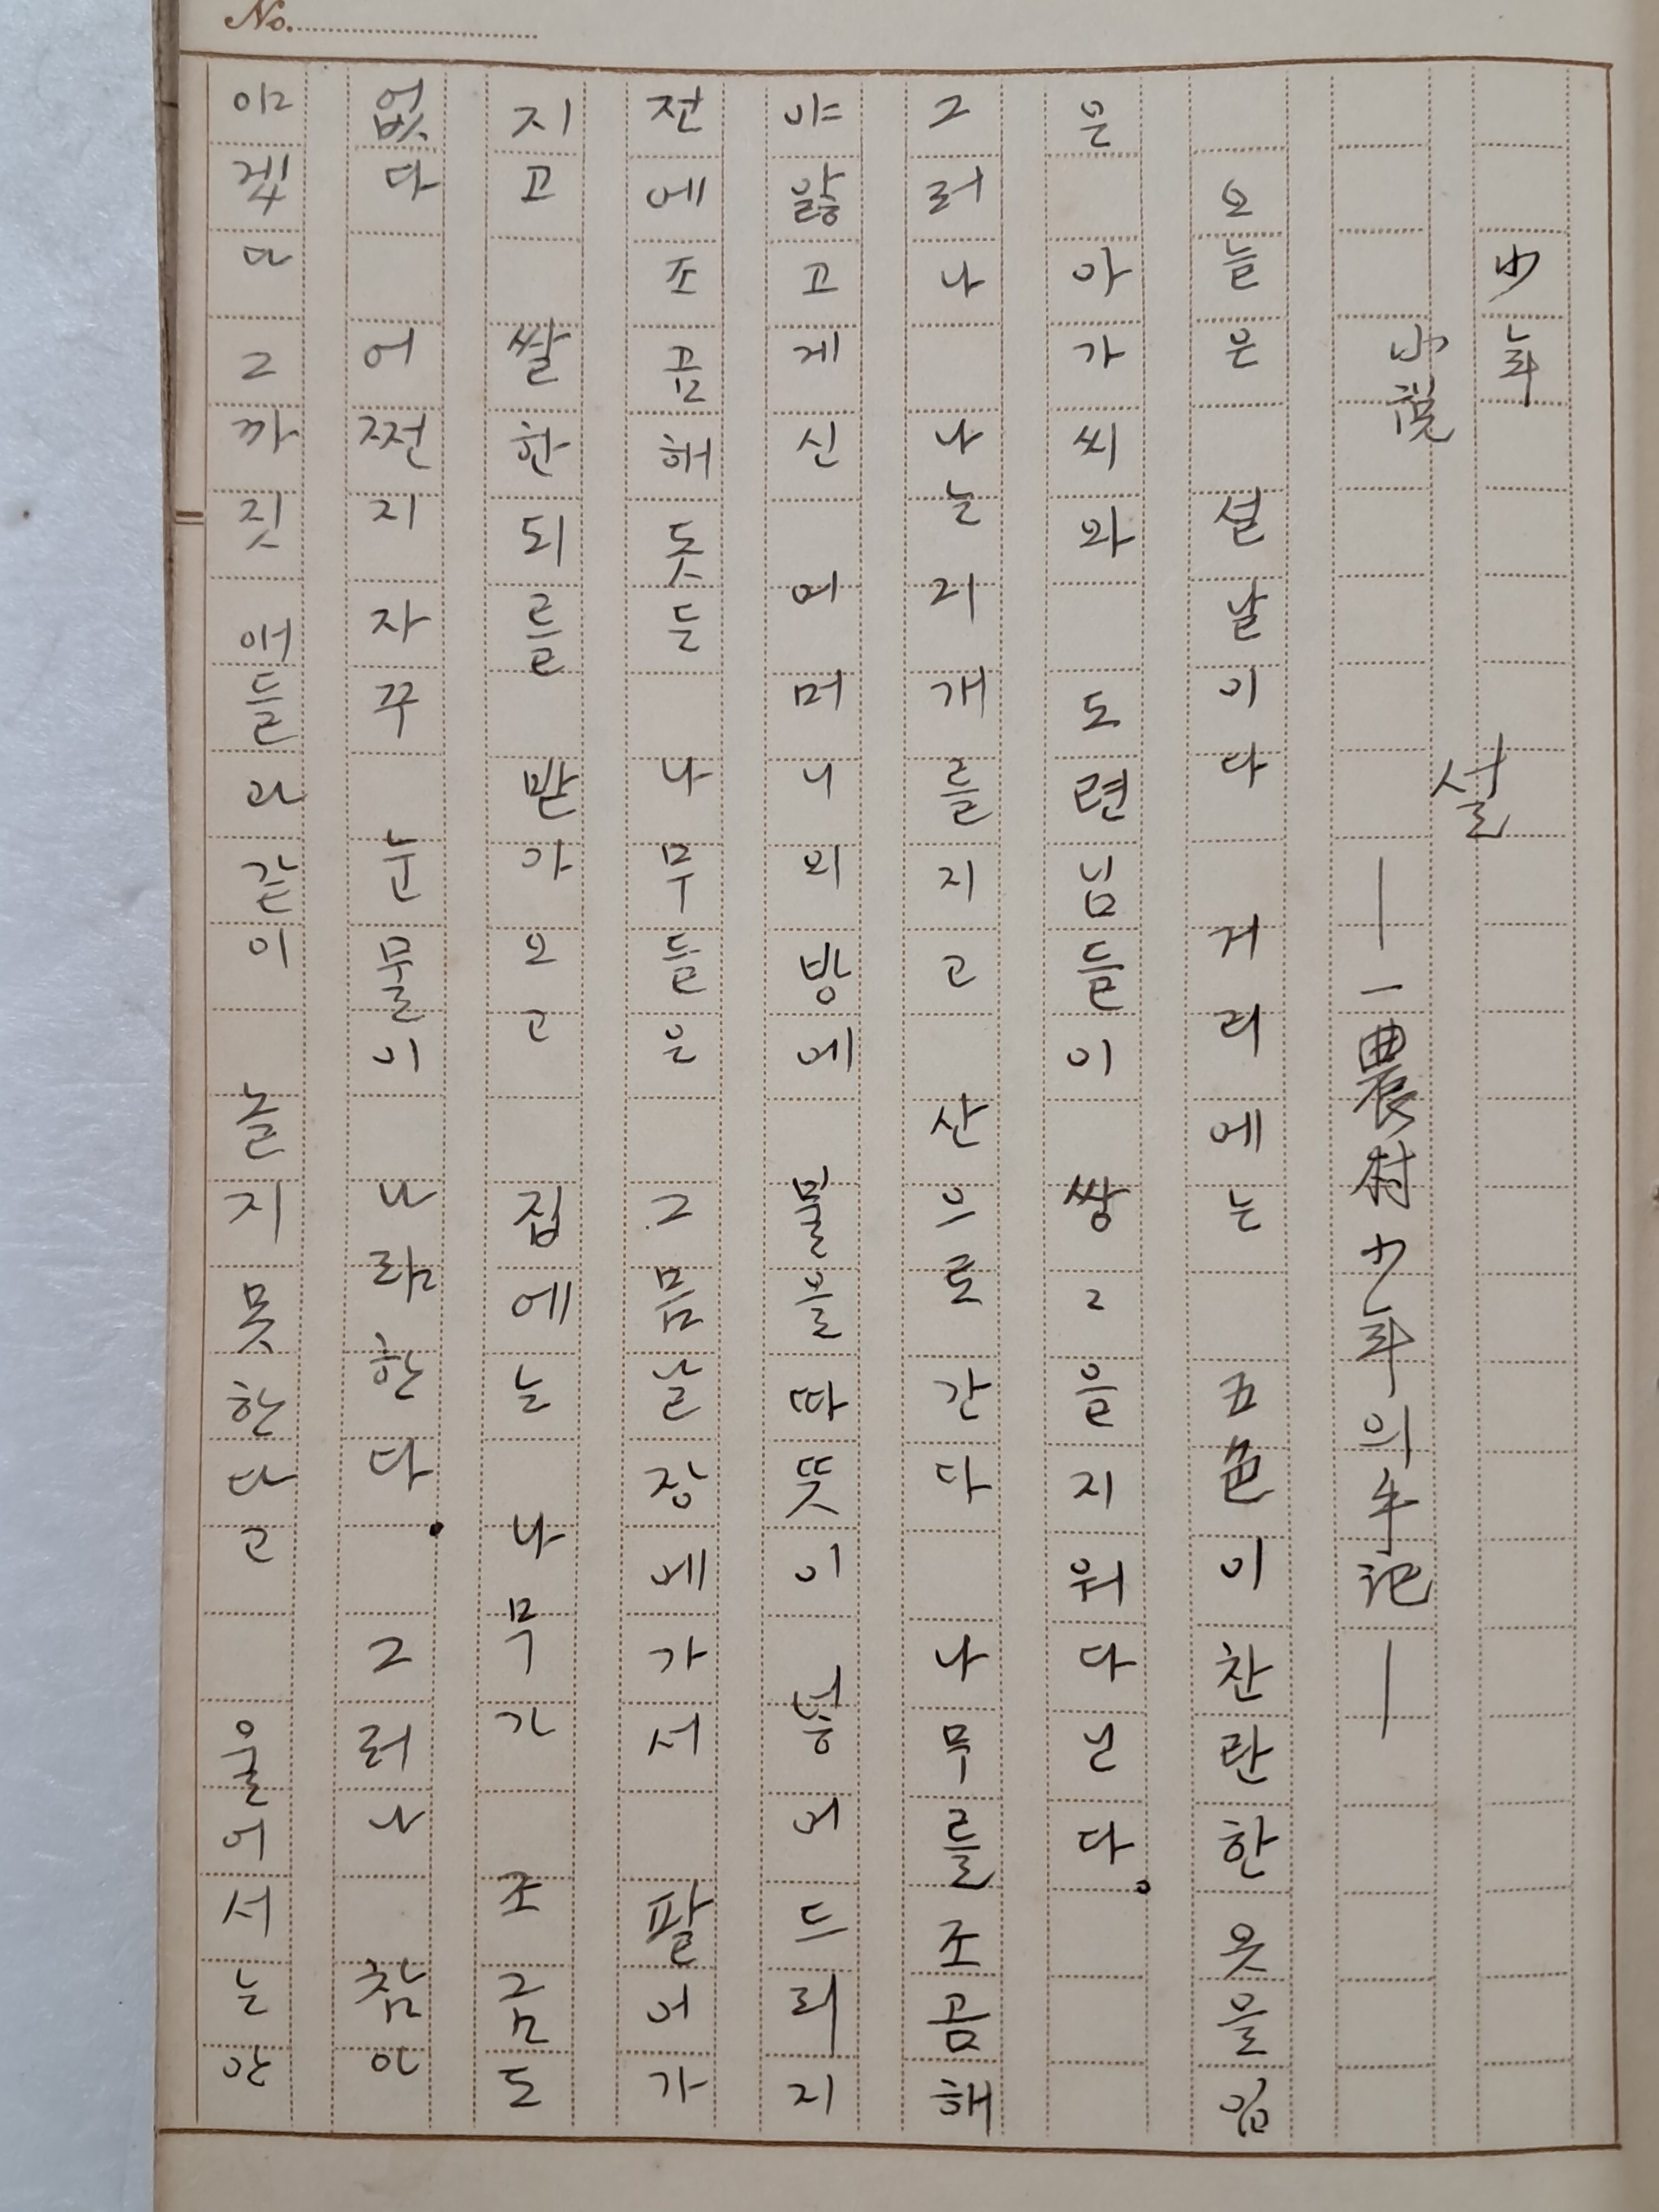 No.
少年
小說
설
—一農村少年의手記—
오늘은 설날이다 거리에는 五色이찬란한옷을입
은 아가씨와 도련님들이 쌍그을지워다닌다。
그러나 나는 리개를지고 산으로간다 나무를조곰해
야 앓고게신 어머니의방에 물을따뜻이 넣어드리지
전에조곰해돗든 나무들은 그믐날장에가서 팔어가
지고 쌀한되를 받아오고 집에는 나무가 조금도
없다 어쩐지자꾸 눈물이 나랴한다. 그러나 참아
야겠다 그까짓 애들과같이 놀지못한다고 울어서는안